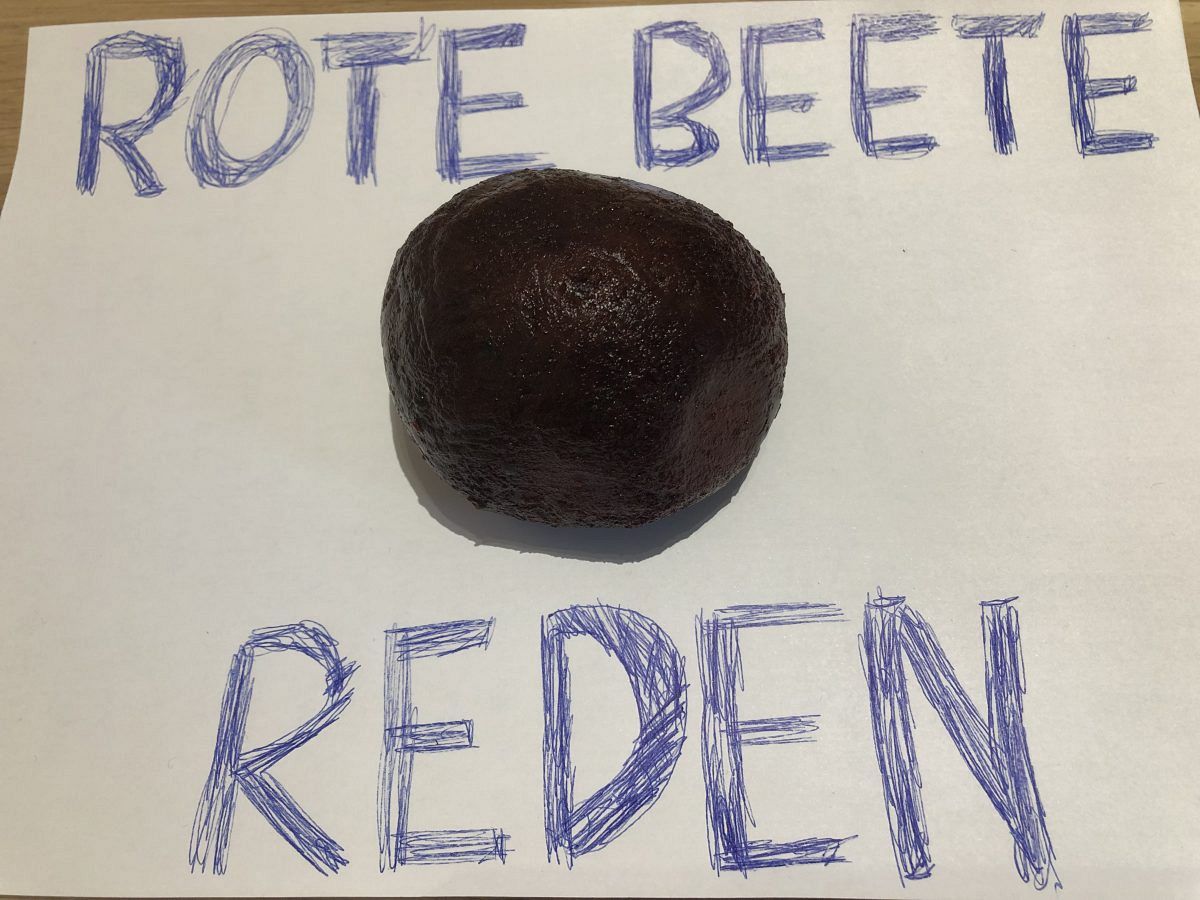 ROTE BEETE
REDEN